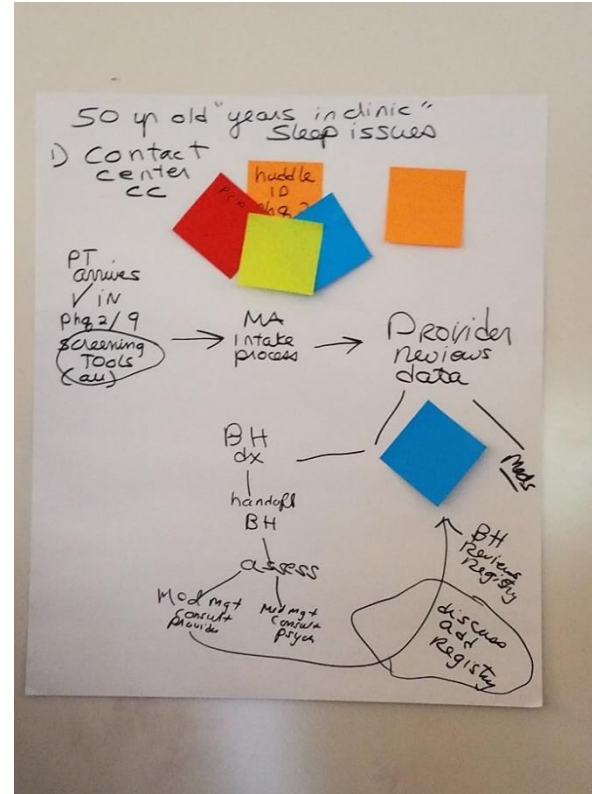 50 yr old "years in clinic"
Sleep issues
1) Contact
center
CC
huddle
ID
phq 2
PT
arrives
✓ IN
phq 2/9
Screening
TOOLS
(all)
MA
intake
process
Provider
reviews
data
Meds
BH
dx
handoff
BH
assess
Med mgt
consult
provider
Med mgt
consult
psych
BH
Reviews
Registry
discuss
add
Registry